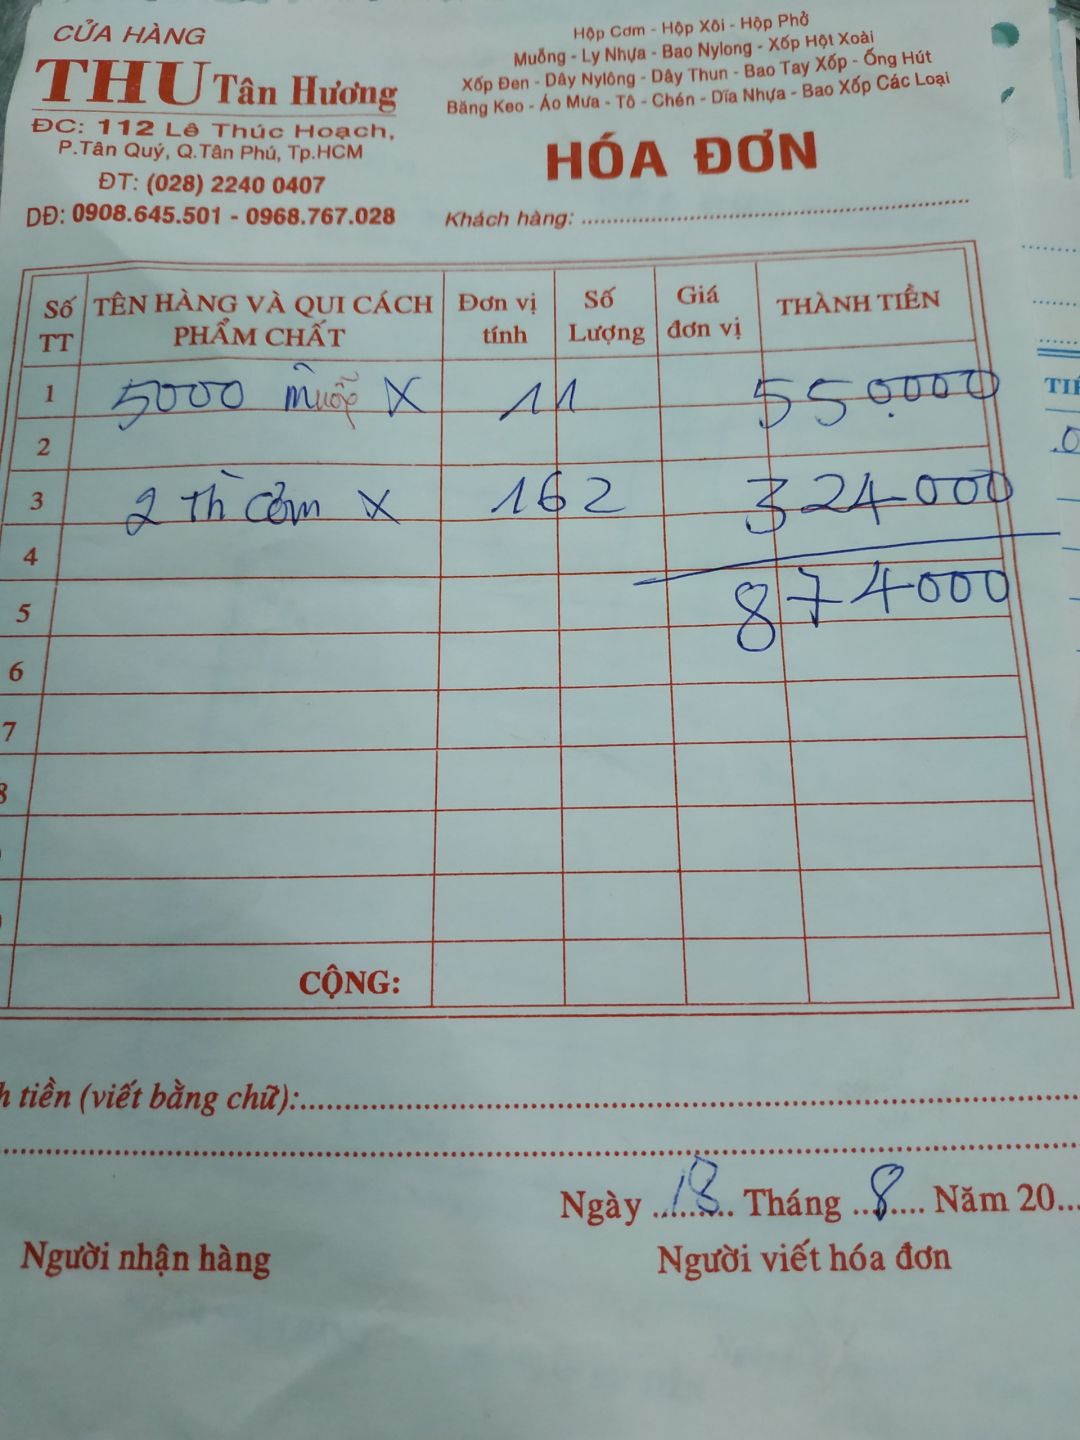 CỬA HÀNG
THU Tân Hương
ĐC: 112 Lê Thúc Hoạch,
P.Tân Quý, Q.Tân Phú, Tp.HCM
ĐT: (028) 2240 0407
DĐ: 0908.645.501 - 0968.767.028
Hộp Cơm - Hộp Xôi - Hộp Phở
Muỗng - Ly Nhựa - Bao Nylong - Xốp Hột Xoài
Xốp Đen - Dây Nylông - Dây Thun - Bao Tay Xốp - Ống Hút
Băng Keo - Áo Mưa - Tô - Chén - Dĩa Nhựa - Bao Xốp Các Loại
HÓA ĐƠN
Khách hàng:
Số TT TÊN HÀNG VÀ QUI CÁCH PHẨM CHẤT Đơn vị tính Số Lượng Giá đơn vị THÀNH TIỀN
1 5000 muỗ X 11 550.000
2
3 2 th cơm X 162 324000
4
5 874000
6
7
8
CỘNG:
h tiền (viết bằng chữ):
Ngày 18 Tháng 8 Năm 20
Người nhận hàng Người viết hóa đơn